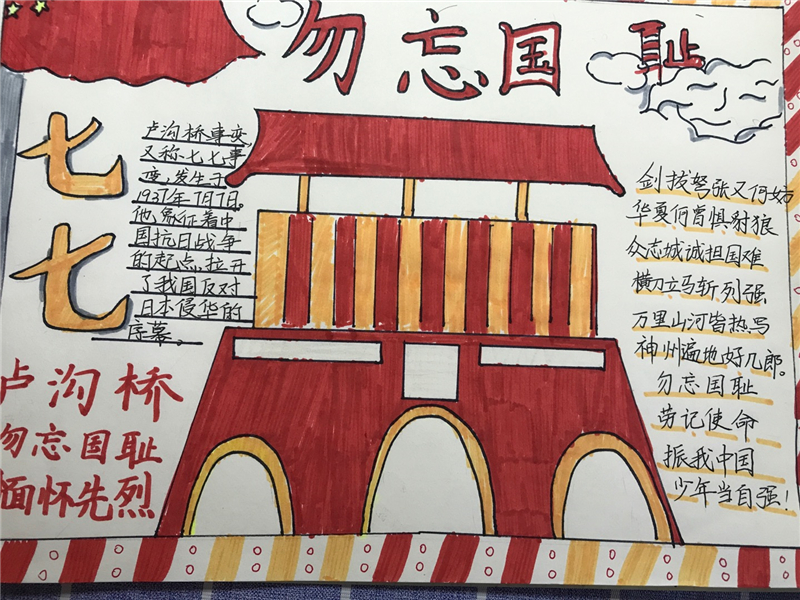 勿忘国耻
七七
卢沟桥事变,
又称七七事
变,发生于
1937年7月7日。
他,象征着中
国抗日战争
的起点,拉开
了我国反对
日本侵华的
序幕。
卢沟桥
勿忘国耻
缅怀先烈
剑拔弩张又何妨
华夏何曾惧豺狼
众志城诚担国难
横刀立马斩列强
万里山河皆热写
神州遍地好几郎。
勿忘国耻
劳记使命
振我中国
少年当自强!